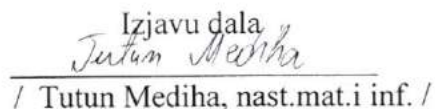 Izjavu dala
Tutun Mediha
/ Tutun Mediha, nast.mat.i inf. /